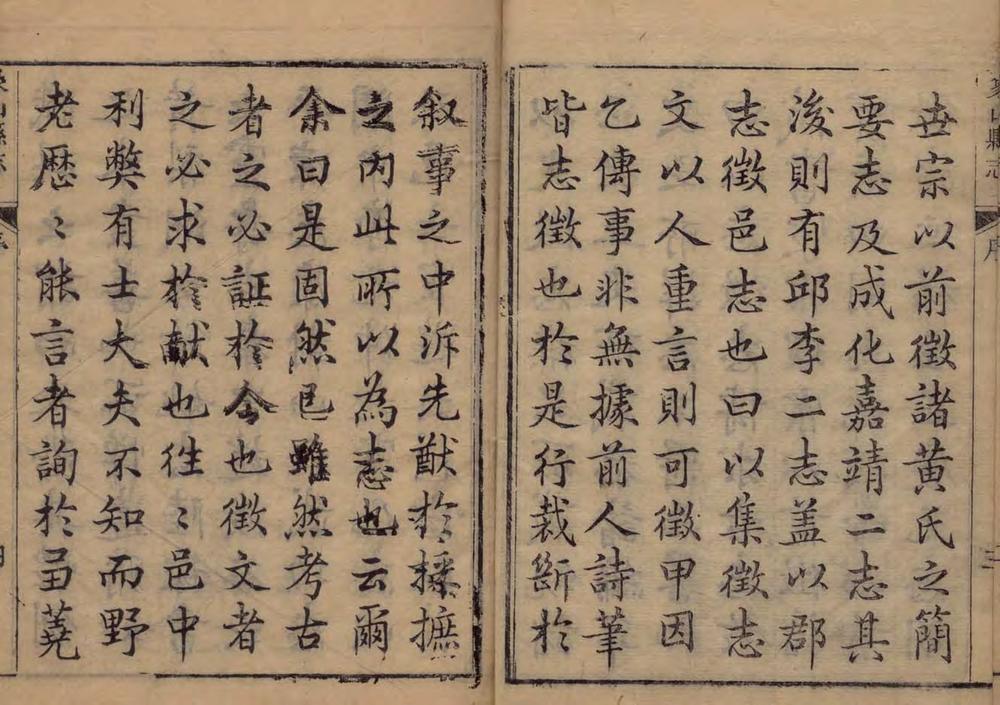 世宗以前徵諸黄氏之簡
要志及成化嘉靖二志其
後則有邱李二志盖以郡
志徵邑志也曰以集徵志
文以人重言則可徵甲因
乙傳事非無據前人詩筆
皆志徵也於是行裁斷於
叙事之中泝先猷於採摭
之内此所以為志也云爾
余曰是固然已雖然考古
者之必証於今也徵文者
之必求於獻也徃〻邑中
利獘有士大夫不知而野
老歴〻能言者詢於芻蕘
縣志
序
三